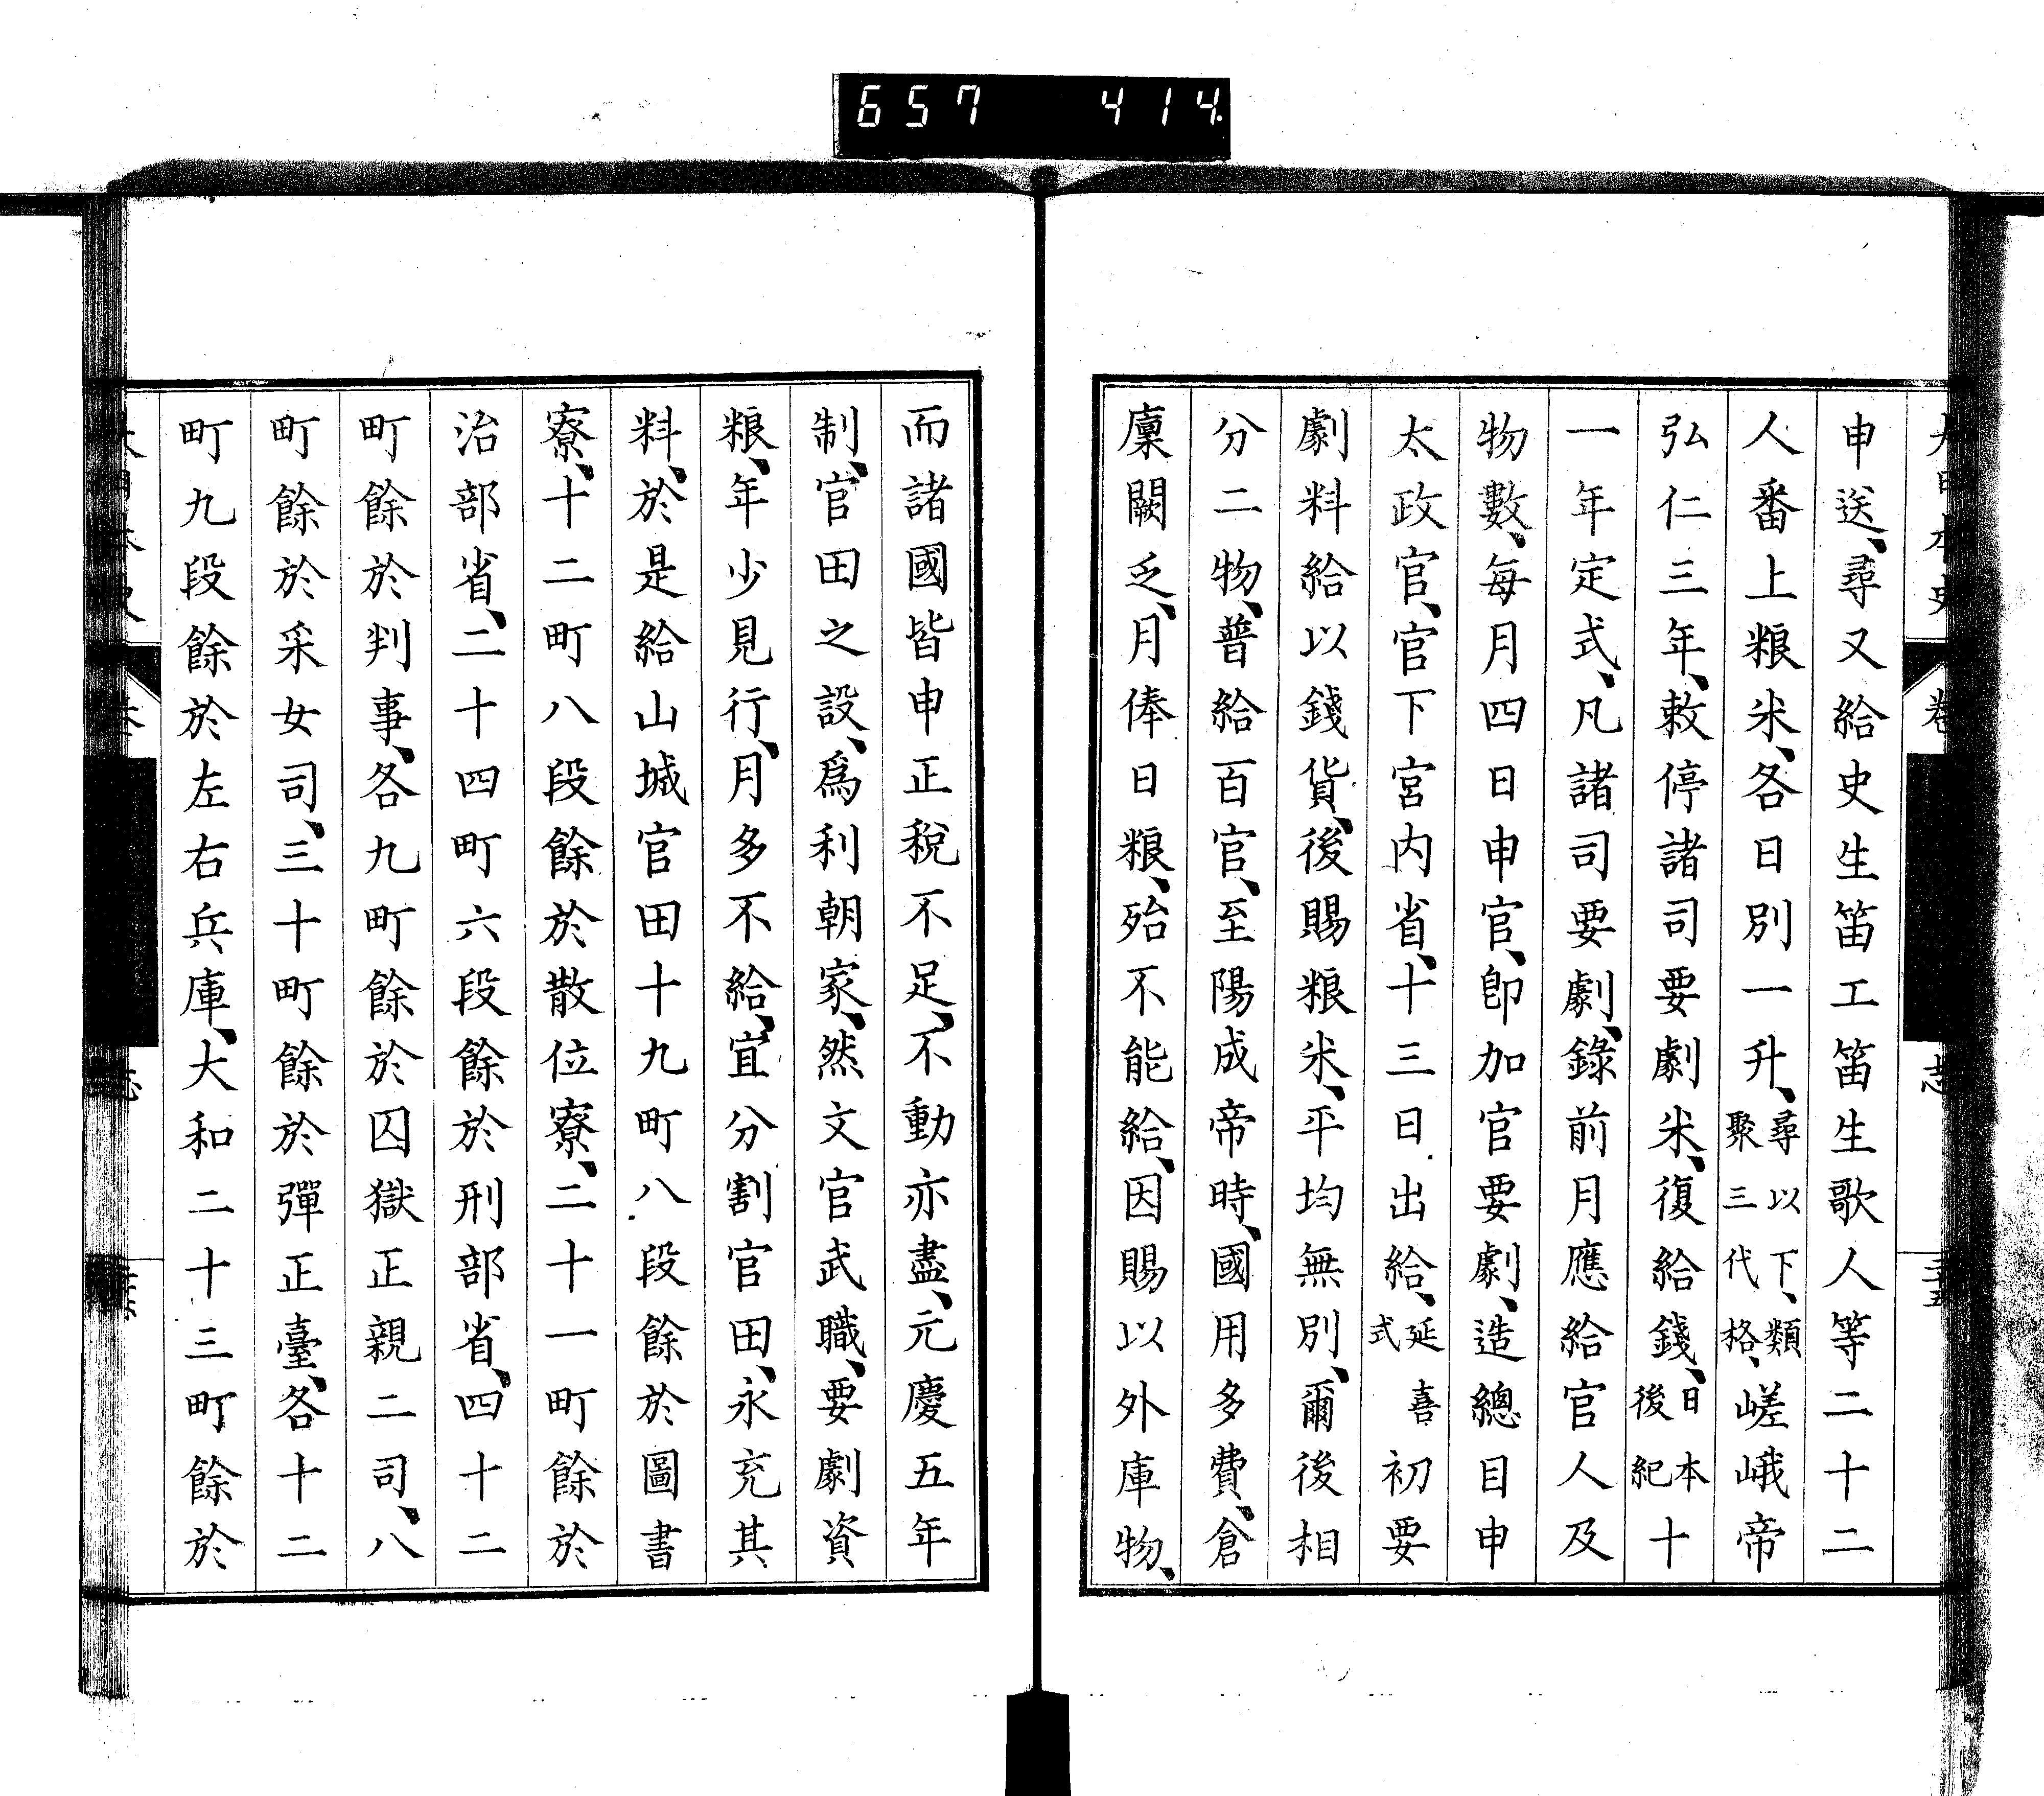 657 414
申送、尋又給史生笛工笛生歌人等二十二
人番上粮米、各日別一升、尋以下、類聚三代格、嵯峨帝
弘仁三年、敕停諸司要劇米、復給錢、日本後紀十
一年定式、凡諸司要劇、錄前月應給官人及
物數、每月四日申官、卽加官要劇、造總目申
太政官、官下宮内省、十三日出給、延喜式初要
劇料給以錢貨、後賜粮米、平均無別、爾後相
分二物、普給百官、至陽成帝時、國用多費、倉
廩闕乏、月俸日粮、殆不能給、因賜以外庫物、
而諸國皆申正稅不足、不動亦盡、元慶五年
制、官田之設、爲利朝家、然文官武職、要劇資
粮、年少見行、月多不給、宜分割官田、永充其
料、於是給山城官田十九町八段餘於圖書
寮、十二町八段餘於散位寮、二十一町餘於
治部省、二十四町六段餘於刑部省、四十二
町餘於判事、各九町餘於囚獄正親二司、八
町餘於采女司、三十町餘於彈正臺、各十二
町九段餘於左右兵庫、大和二十三町餘於